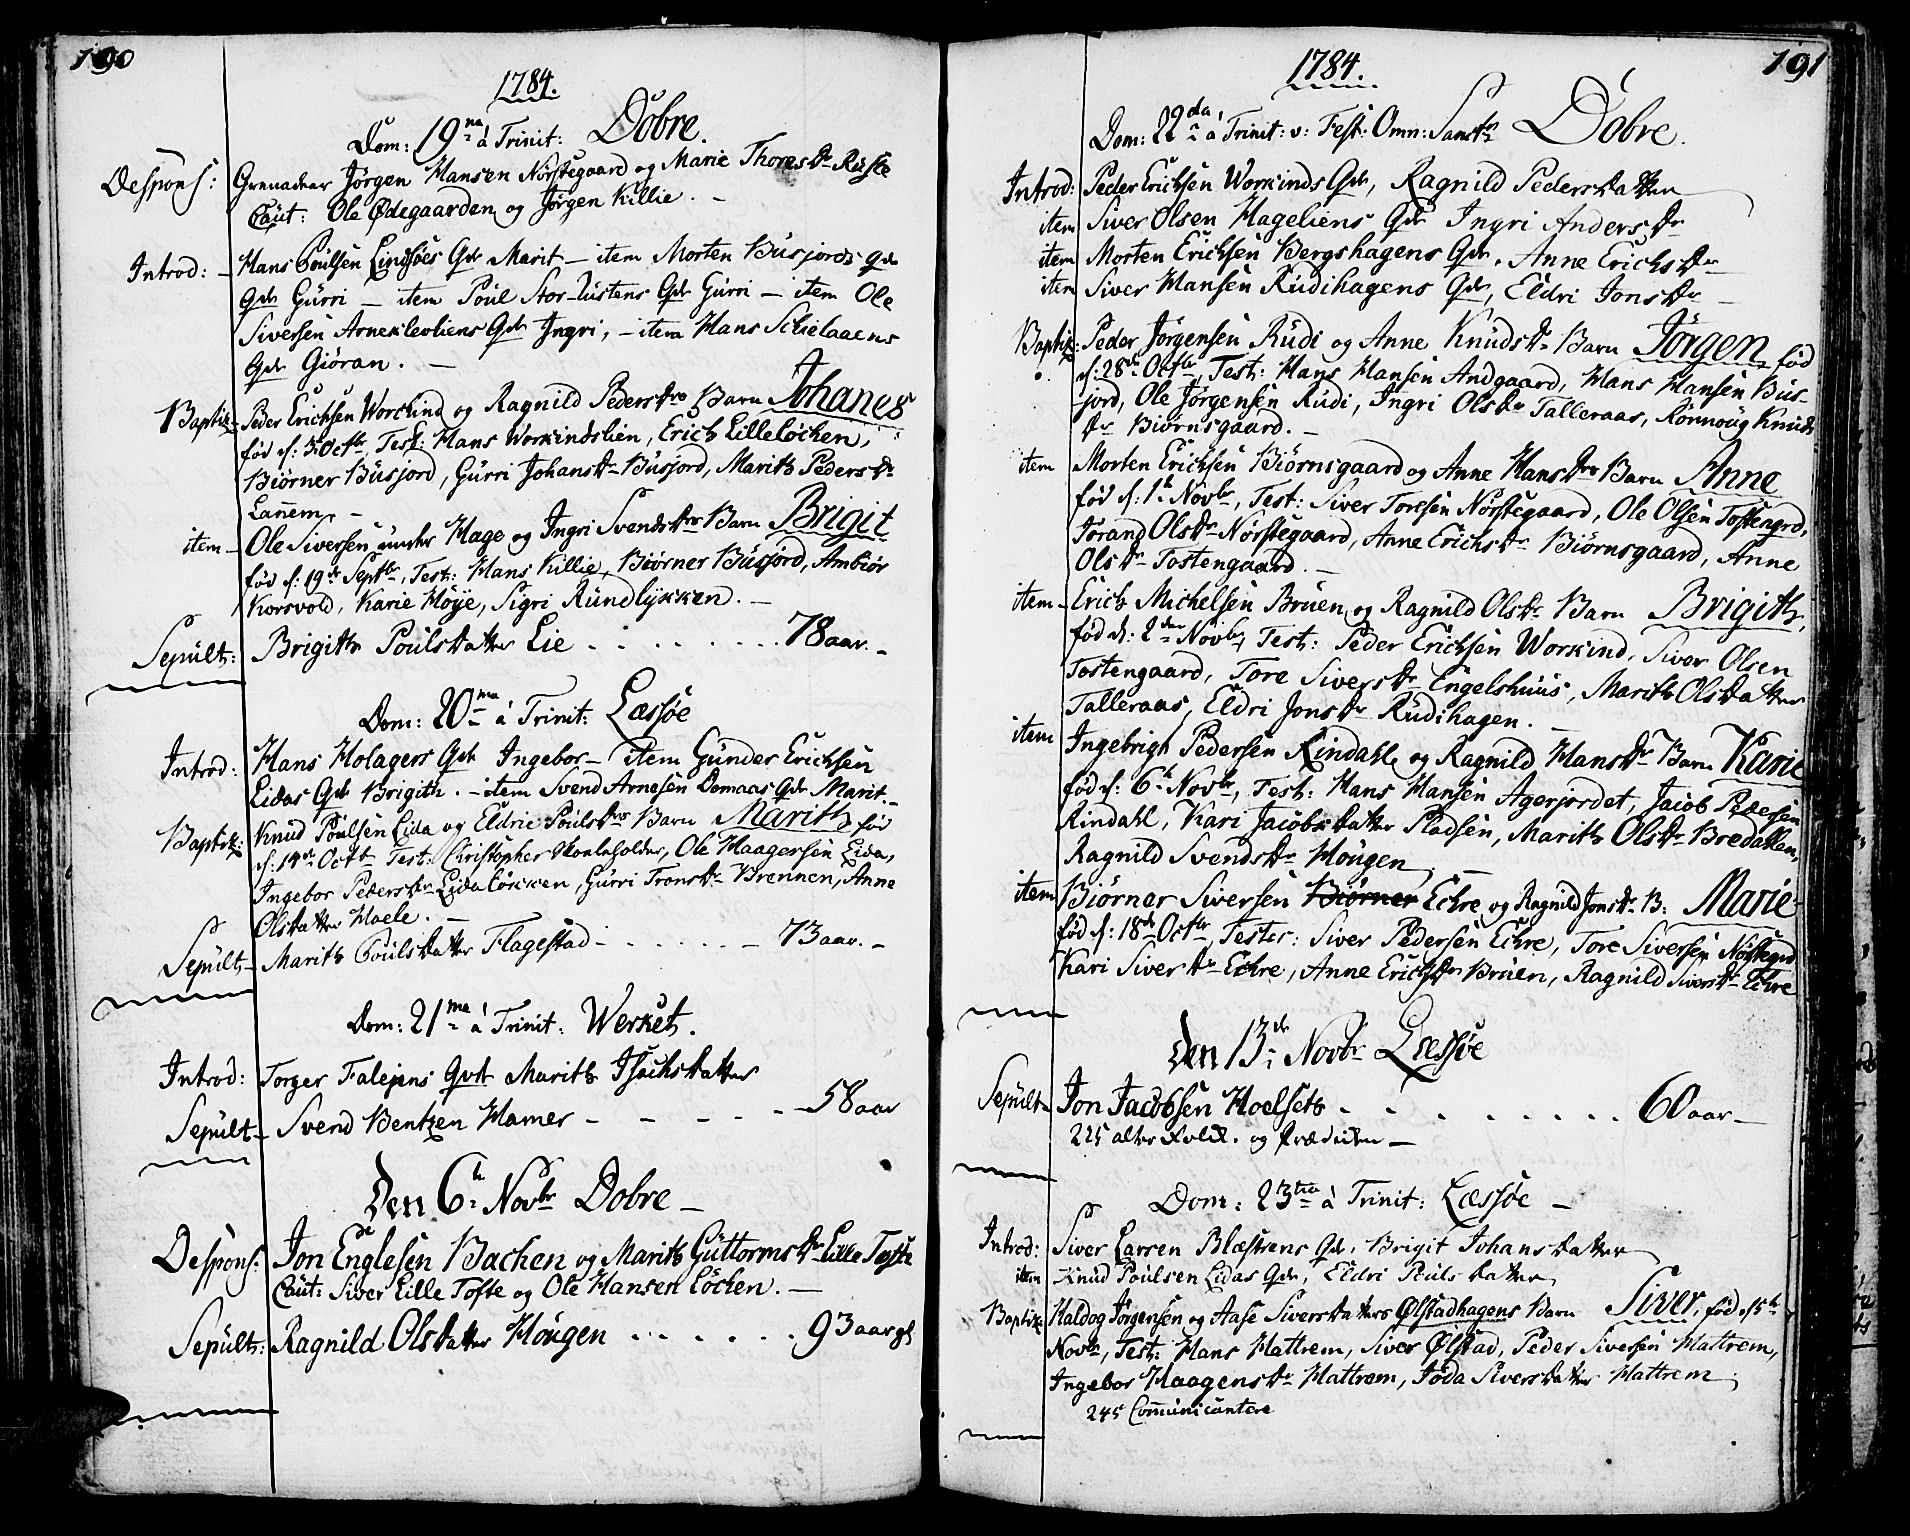 190
1784.
Dom: 19na á Trinit: Dobre.
Despons: Grenadeer Jørgen Hansen Nørstegaard og Marie Thores Dr Ruste
Caut: Ole Ødegaarden og Jørgen Killie. –
Introd: – Hans Poulsen Lindsøes Qde Marit – item Morten Busjords Qde
Qde Gurri – item Poul Stor-lustens Qde Gurri – item Ole
Siversen Arnekleoliens Qde Ingri, – item Hans Schielaaens
Qde Giøran. –
Baptiz – Peder Erichsen Workind og Ragnild Peders Drs Barn Johanes
fød d: 3 Octbr, Test: Hans Workindslien, Erich Lilleløchen,
Biørner Busjord, Gurri Johans Dr Busjord, Marith Peders Dr
Lanem. –
item – Ole Siversen under Hage og Ingri Svends Drs Barn Brigit
fød d: 19de Septbr, Test: Hans Killie, Biørner Busjord, Ambiør
Korsvold, Karie Høye, Sigri Rundlykken. –
Sepult: Brigith Pouls Datter Lie . . . . . . . . 78 aar. –
Dom: 20ma á Trinit: Læssøe
Introd: Hans Holagers Qde Ingebor – item Gunder Erichsen
Lidas Qde Brigith. – item Svend Arnesen Domaas Qde Marit. –
Baptiz: Knud Poulsen Lida og Eldrie Pouls Drs Barn Marith fød
d: 14de Octb Test: Christopher Skouleholder, Ole Haagersen Lida,
Ingebor Peders Dr Lidaløkken, Gurri Trons Dr Brennen, Anne
Ols Datter Hoele. –
Sepult – Marith Pouls Datter Flagestad – . . . . . – 73 aar. –
Dom: 21ma á Trinit: Werket.
Introd: Torger Falejens Qde Marith Isachs Datter
Sepult – Svend Bentzen Hamer – – – – – – 58 aar
Den 6te Novbr Dobre –
Despons: Jon Englesen Bachen og Marith Guttorms Dr Lille Tofte
Caut: Siver Lille Tofte og Ole Hansen Løchen. –
Sepult: Ragnild Ols Datter Hougen . . . . . . . 93 aar gl
191
1784.
Dom: 22da á Trinit: v: Fest: Omn: Sanctr Dobre.
Introd: Peder Erichsen Workinds Qde, Ragnild Peders Datter
item Siver Olsen Hageliens Qde Ingri Anders Dr
item Morten Erichsen Bergshagens Qde, Anne Erichs Dr
item Siver Hansen Rudihagens Qde, Eldri Jons Dr –
Baptiz: Peder Jørgensen Rudi og Anne Knuds Dr Barn Jörgen fød
d: 28de Octbr, Test: Hans Hansen Andgaard, Hans Hansen Bus-
jord, Ole Jørgensen Rudi, Ingri Ols Dr Talleraas, Rønnoug Knuds
Dr Biørnsgaard. –
item Morten Erichsen Biörnsgaard og Anne Hans Drs Barn Anne
fød d: 1te Novbr, Test: Siver Toresen Nørstegaard, Ole Olsen Tostengrd,
Torand Ols Dr Nørstegaard, Anne Erichs Dr Biørnsgaard, Anne
Ols Dr Tostengaard. –
item – Erich Michelsen Bruen og Ragnild Ols Dr Barn Brigith,
fød d: 2den Novbr, Test: Peder Erichsen Workind, Siver Olsen
Tostengaard, Tore Sivers Dr Engelshuus, Marith Ols Datter
Talleraas, Eldri Jons Dr Rudihagen. –
item Ingebrigt Pedersen Rindahl og Ragnild Hans Dr Barn Karie
fød d: 6te Novbr, Test: Hans Hansen Agerjordet, Jacob Pedersen
Rindahl, Kari Jacobs Datter Pladsen, Marith Ols Dr Bredahlen,
Ragnild Svends Dr Hougen –
item Biørner Siversen Biørner Echre og Ragnild Jons Dr B: Marie
fød d: 18de Octbr, Testes: Siver Pedersen Echre, Tore Siversen Nøstegrd
Kari Sivers Dr Echre, Anne Erichs Dr Bruen, Ragnild Sivers Dr Echre
Den 13de Novbr Læssøe
Sepult – Jon Jacobsen Hoelseth . . . . . . . . 60 aar –
225 og Prædiken –
Dom: 23tia á Trinit: Læssøe –
Introd: Siver Larsen Blæstrens Qde, Brigit Johans Datter
item Knud Poulsen Lidas Qde, Eldri Pouls Datter
Baptiz Haldog Jørgensen og Aase Sivers Datters Ølstadhagens Barn Siver, fød d 5te
Novbr, Test: Hans Hattrem, Siver Ølstad, Peder Siversen Hattrem,
Ingebor Haagens Dr Hattrem, Joda Sivers Datter Hattrem
245 Communicantere